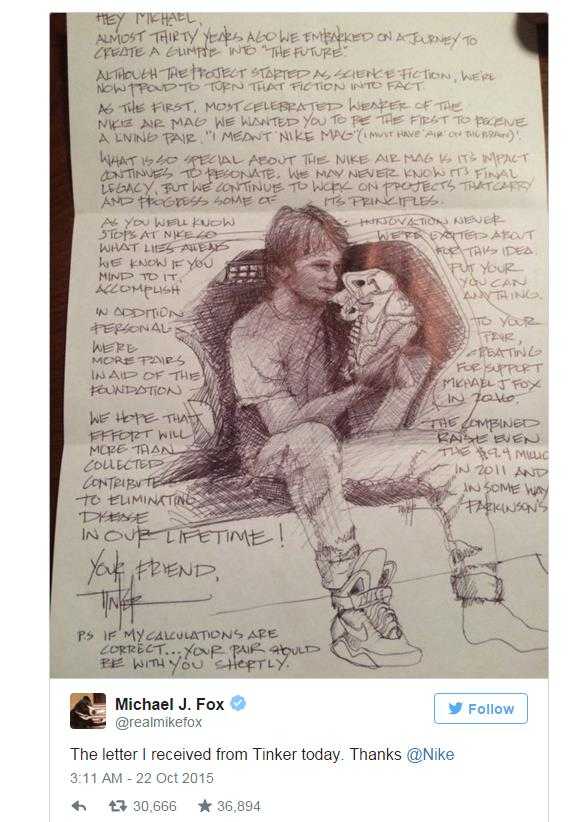 HEY MICHAEL,
ALMOST THIRTY YEARS AGO WE EMBARKED ON A JOURNEY TO
CREATE A GLIMPSE INTO "THE FUTURE".
ALTHOUGH THE PROJECT STARTED AS SCIENCE FICTION, WE'RE
NOW PROUD TO TURN THAT FICTION INTO FACT.
AS THE FIRST, MOST CELEBRATED WEARER OF THE
NIKE AIR MAG WE WANTED YOU TO BE THE FIRST TO RECEIVE
A LIVING PAIR, "I MEANT 'NIKE MAG' (I MUST HAVE 'AIR' ON THE BRAIN)'.
WHAT IS SO SPECIAL ABOUT THE NIKE AIR MAG IS ITS IMPACT
CONTINUES TO RESONATE. WE MAY NEVER KNOW IT'S FINAL
LEGACY, BUT WE CONTINUE TO WORK ON PROJECTS THAT CARRY
AND PROGRESS SOME OF ITS PRINCIPLES.
AS YOU WELL KNOW INNOVATION NEVER
STOPS AT NIKE SO WE'RE EXCITED ABOUT
WHAT LIES AHEAD FOR THIS IDEA.
WE KNOW IF YOU PUT YOUR
MIND TO IT, YOU CAN
ACCOMPLISH ANYTHING.
IN ADDITION TO YOUR
PERSONAL PAIR,
WE'RE CREATING
MORE PAIRS FOR SUPPORT
IN AID OF THE MICHAEL J FOX
FOUNDATION IN 2016.
WE HOPE THAT THE COMBINED
EFFORT WILL RAISE EVEN
MORE THAN THE $9.4 MILLIO
COLLECTED IN 2011 AND
CONTRIBUTE IN SOME WAY
TO ELIMINATING PARKINSON'S
DISEASE
IN OUR LIFETIME!
YOUR FRIEND,
TINKER
PS IF MY CALCULATIONS ARE
CORRECT... YOUR PAIR SHOULD
BE WITH YOU SHORTLY.
Michael J. Fox
@realmikefox
Follow
The letter I received from Tinker today. Thanks @Nike
3:11 AM - 22 Oct 2015
30,666 36,894